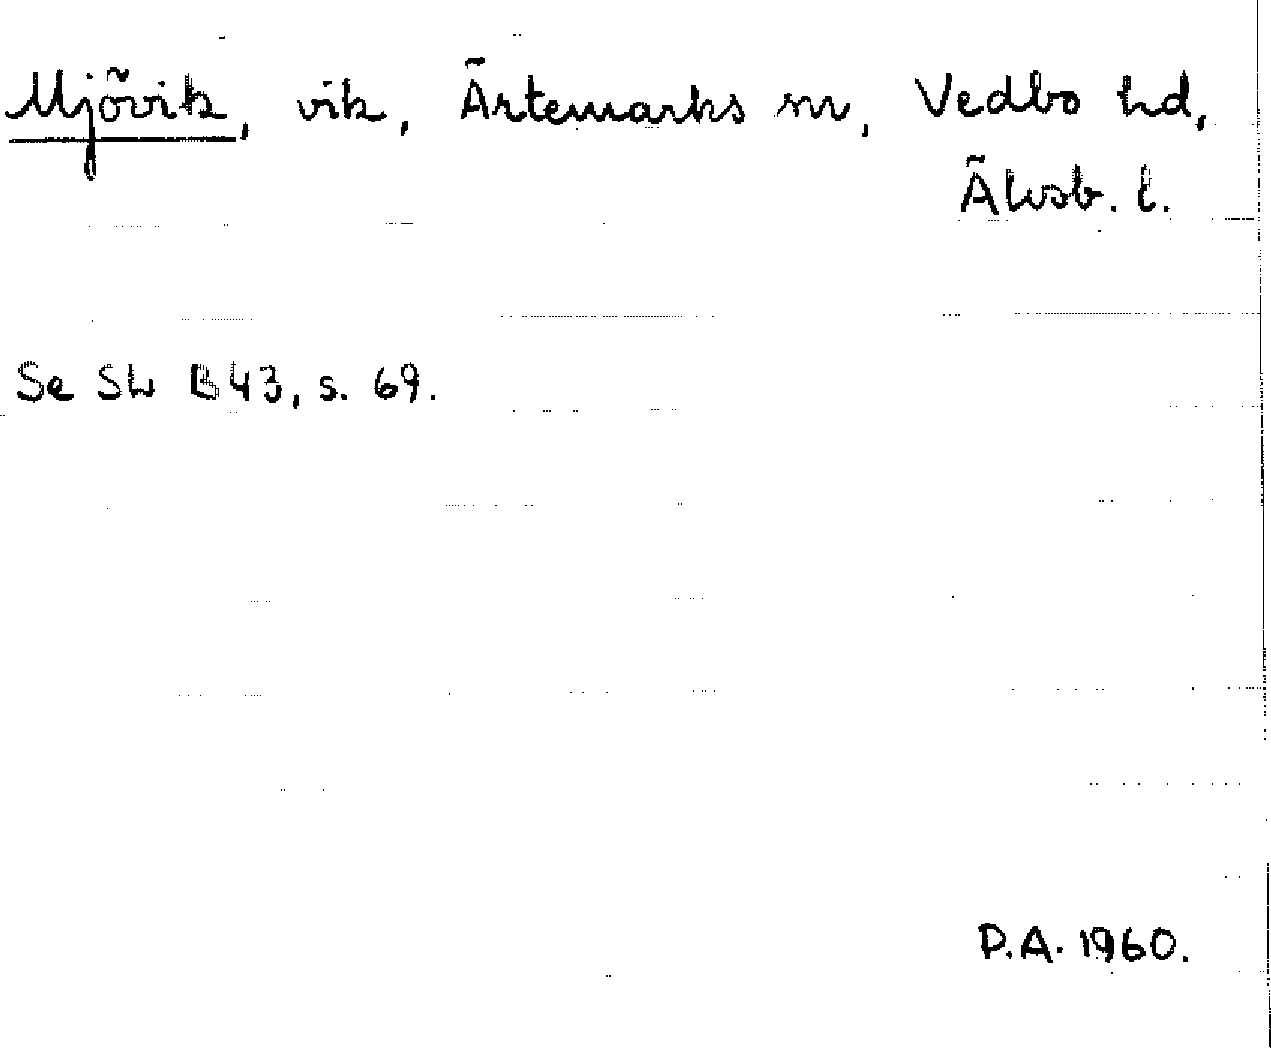 Mjövik, vik, Ärtemarks sn, Vedbo hd,
Älvsb. l.
Se SH B43, s. 69.
P.A. 1960.